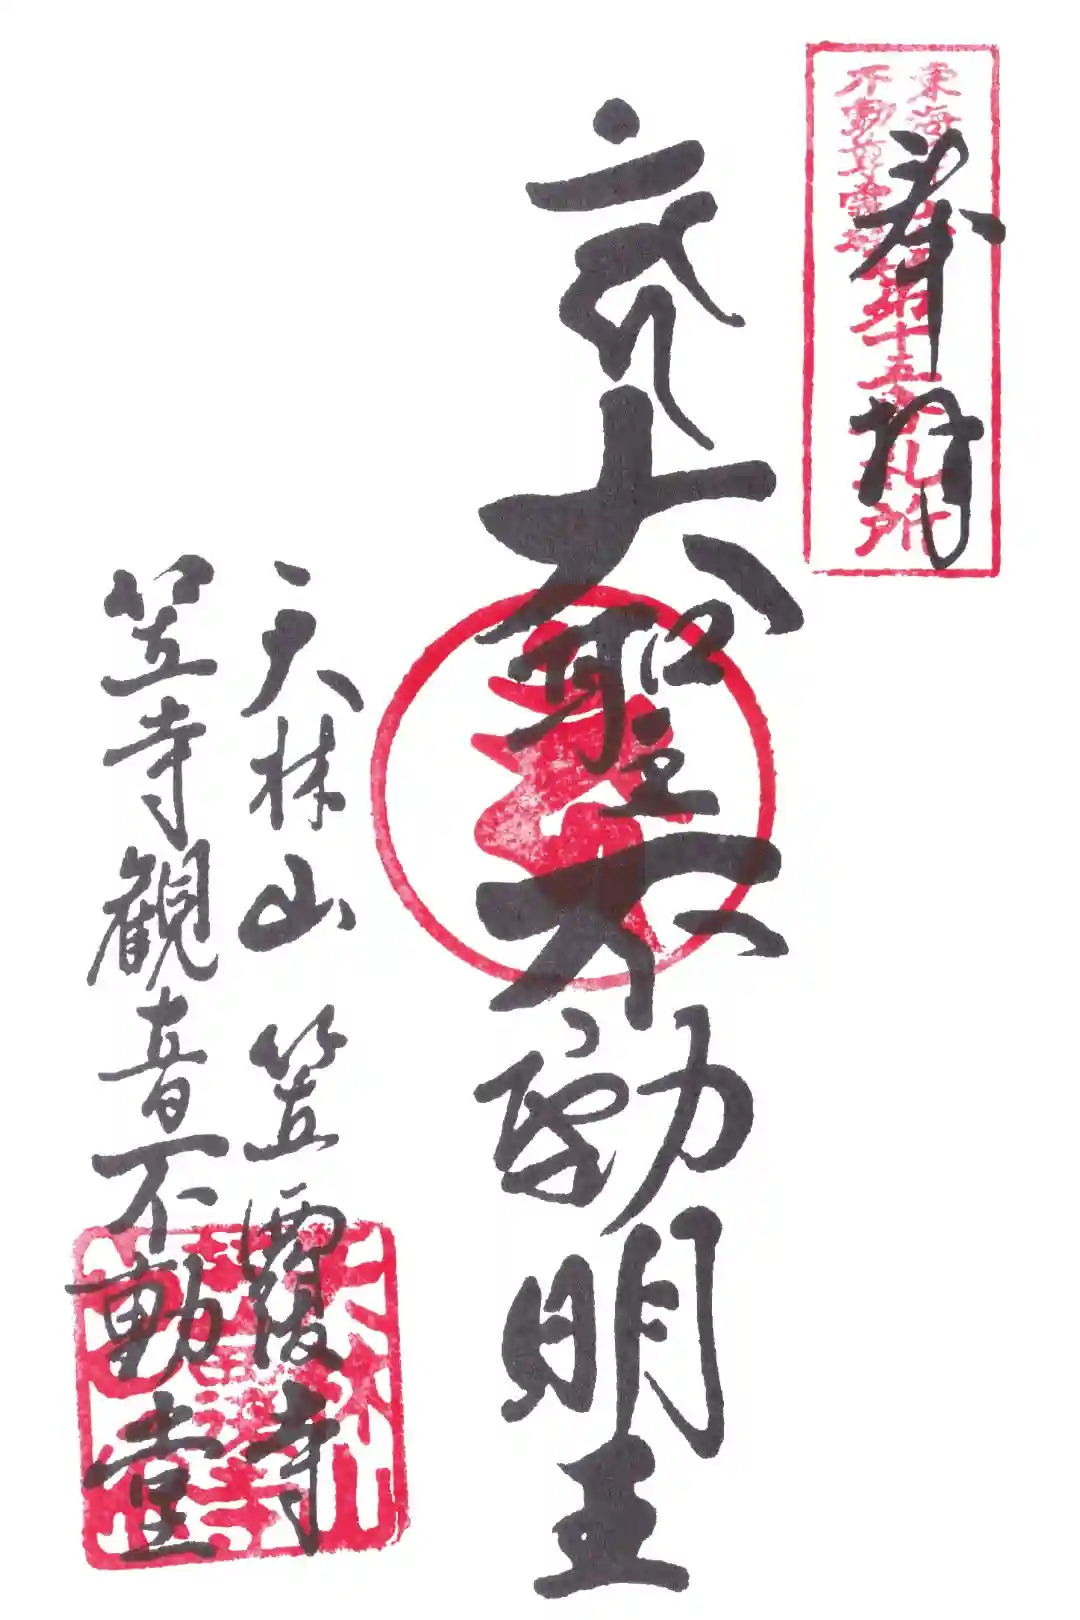 奉拝
東海
不動尊霊場
第十五番札所
大聖不動明王
天林山 笠覆寺
笠寺観音不動堂